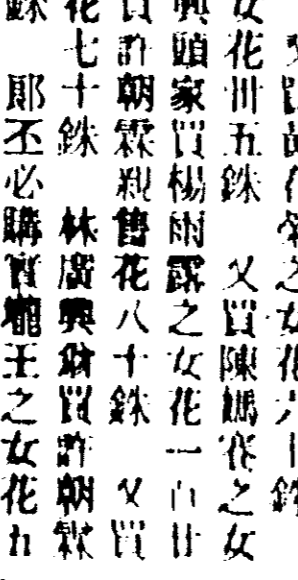 之女花六十銖
女花卅五銖 又買陳媽之女
興頭家買楊雨露之女花一百廿
買許朝霖親花八十銖 又買
花七十銖 林廣興財買許朝霖
銖 郎丕必購實壠王之女花九